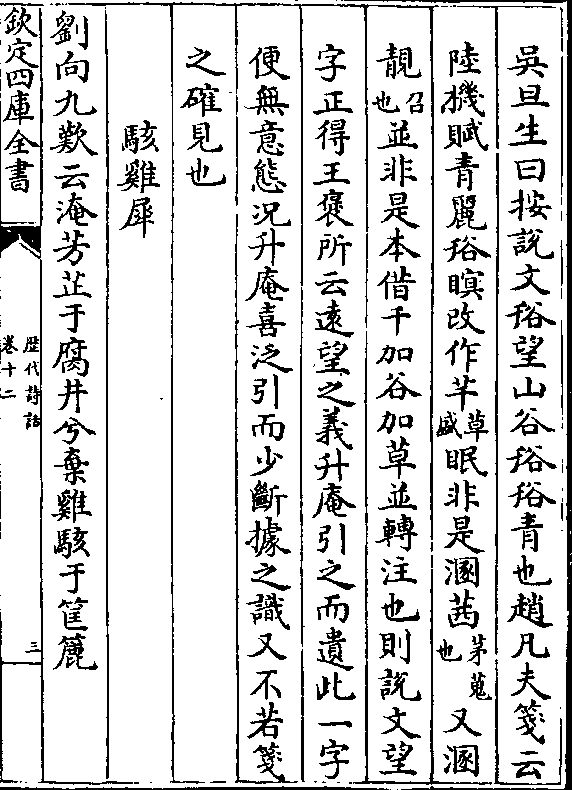 吳旦生曰按說文谸望山谷谸谸青也趙凡夫箋云
陸機賦青麗谸瞑改作芊草盛眠非是溷茜茅蒐也又溷
靚召也並非是本借千加谷加草並轉注也則說文望
字正得王褒所云遠望之義升庵引之而遺此一字
便無意態况升庵喜泛引而少斷據之識又不若箋
之確見也
駭雞犀
劉向九歎云淹芳芷于腐井兮棄雞駭于筐簏
欽定四庫全書
歴代詩話
卷十二
三